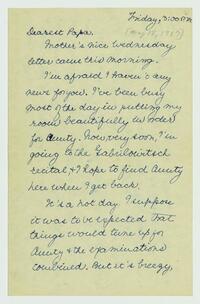 Friday, 3:00 P.M.
Dearest Papa,
Mother's nice Wednesday
letter came this morning.
I'm afraid I haven't any
news for you. I've been busy
most of the day in putting my
room beautifully in order
for Aunty. Now, very soon, I'm
going to the Gabrilowitsch
recital & I hope to find Aunty
here when I get back.
It's a hot day. I suppose
it was to be expected that
things would tune up for
Aunty & the examinations
combined. But it's breezy,